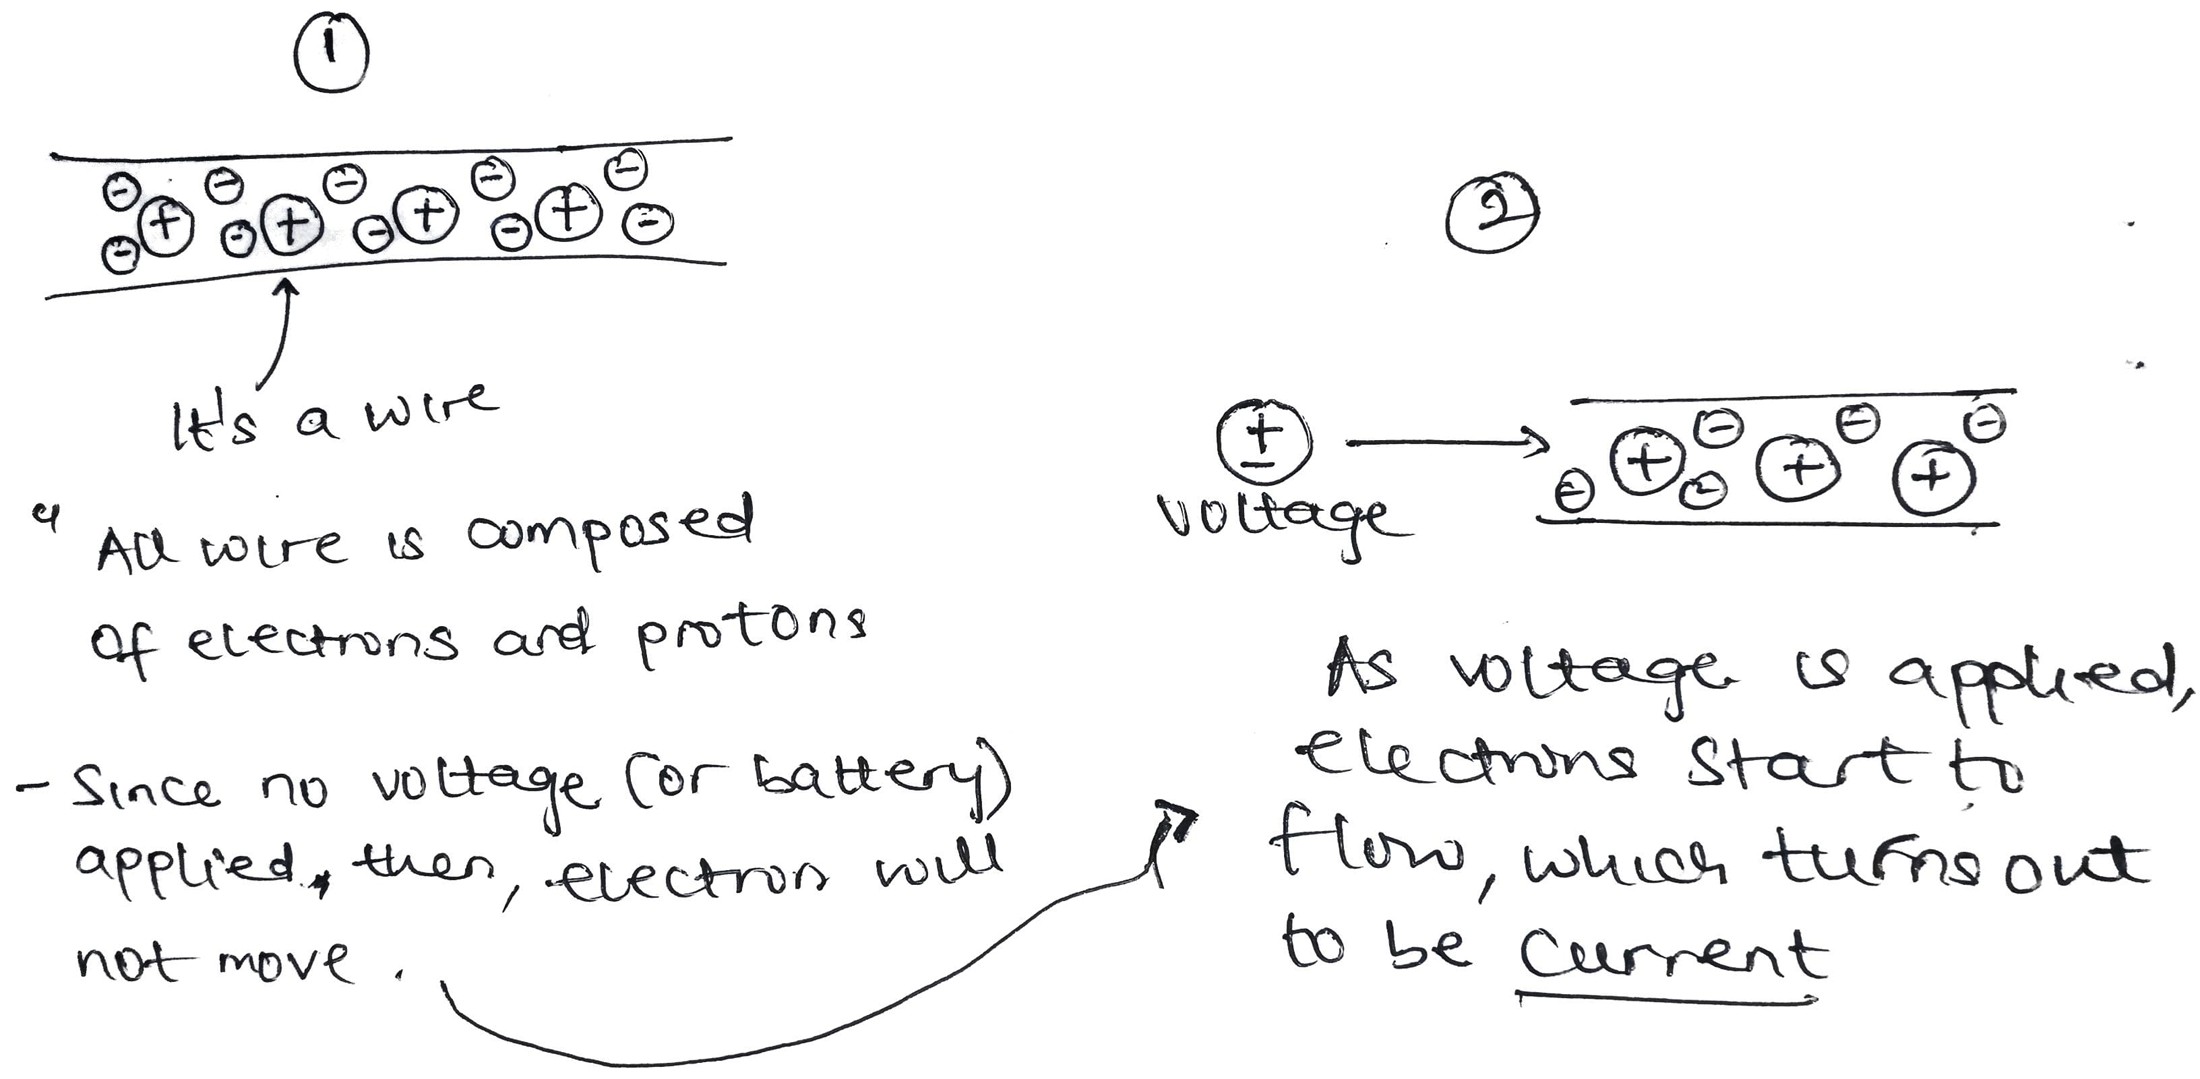 1
It's a wire
All wire is composed
of electrons and protons
- Since no voltage (or battery)
applied, then, electron will
not move.
2
voltage
As voltage is applied,
electrons start to
flow, which turns out
to be current